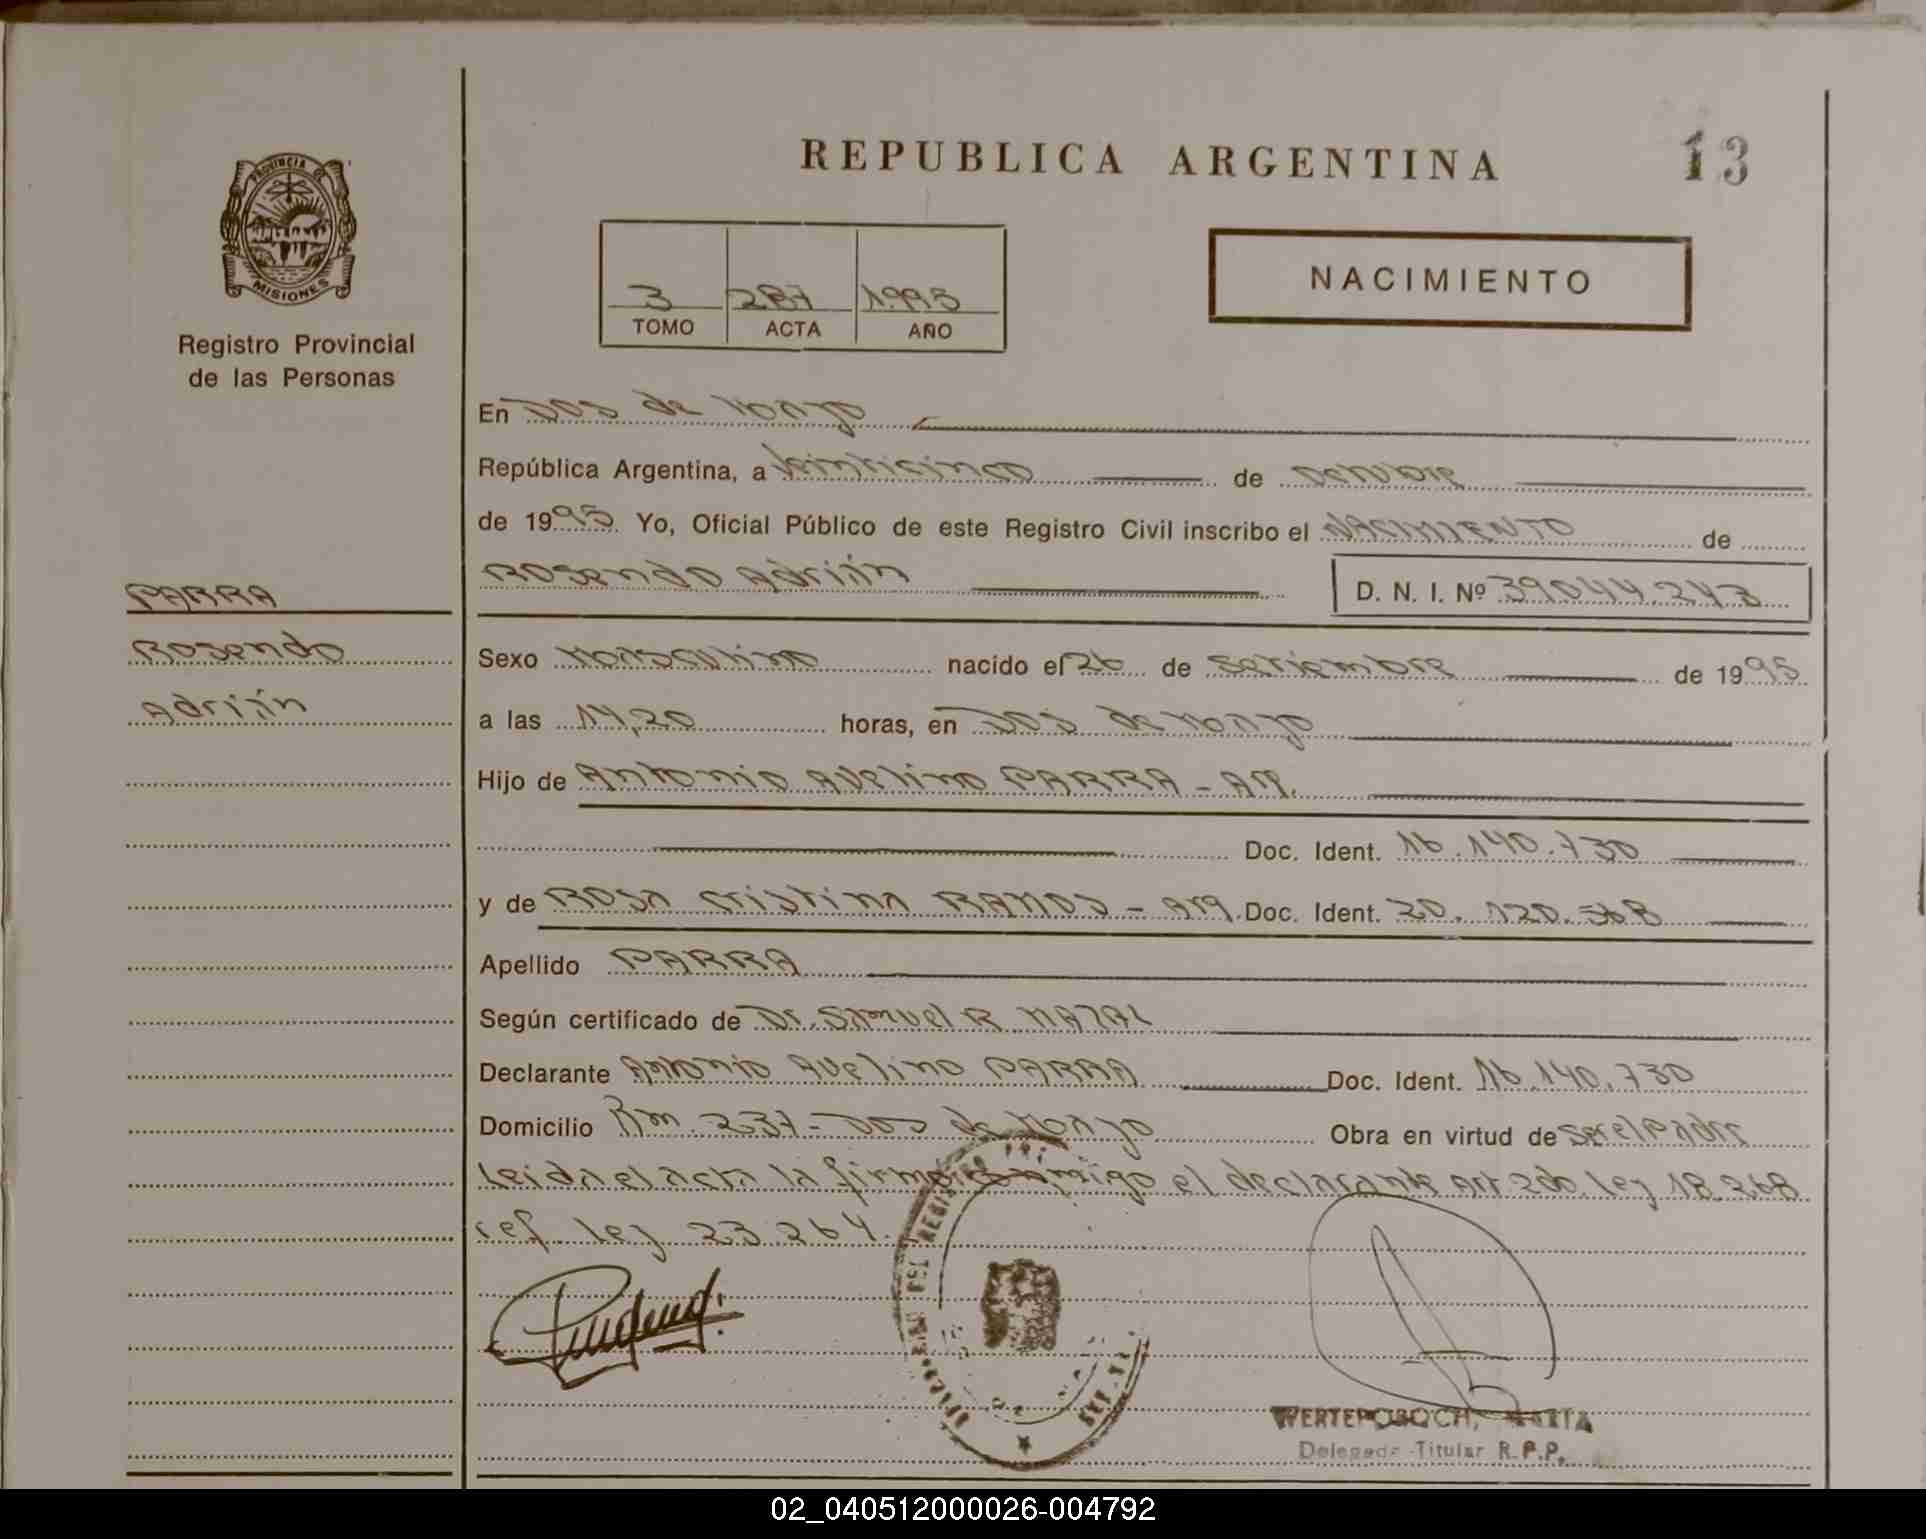 REPUBLICA ARGENTINA
13
PROVINCIA DE
MISIONES
Registro Provincial
de las Personas
3 287 1995
TOMO ACTA AÑO
NACIMIENTO
En Dos de Mayo
República Argentina, a veinticinco de octubre
de 1995 Yo, Oficial Público de este Registro Civil inscribo el NACIMIENTO de
Rosendo Adrián D. N. I. Nº 39044.243
PARRA
Rosendo
Adrián
Sexo Masculino nacido el 26 de setiembre de 1995
a las 14,20 horas, en Dos de Mayo
Hijo de Antonio Avelino PARRA - Arg.
Doc. Ident. 16.140.730
y de Rosa Cristina RAMOS - Arg. Doc. Ident. 20.120.568
Apellido PARRA
Según certificado de Dr. Samuel R. NAZAL
Declarante Antonio Avelino PARRA Doc. Ident. 16.140.730
Domicilio Km. 237 - Dos de Mayo Obra en virtud de ser el padre
Leida el acta la firma conmigo el declarante Art 2do. ley 18.268
ref. ley 23.264.
WERTEPOBOCH, MARTA
Delegada Titular R.P.P.
02_040512000026-004792